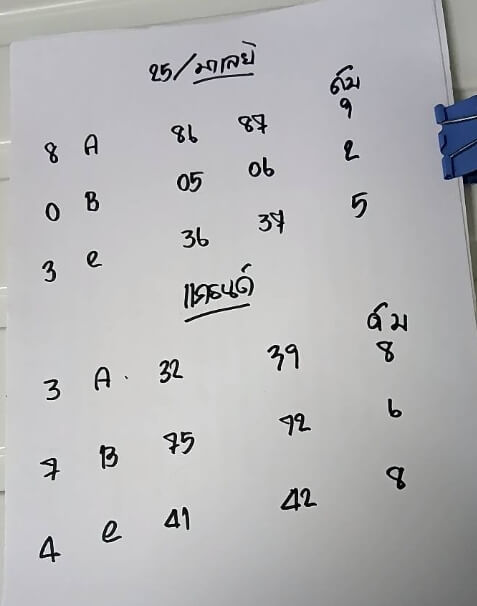 25/มาเลย์
ดับ
8 A 86 87 9
0 B 05 06 2
3 e 36 37 5
แคนด์
ดับ
3 A. 32 39 8
7 B 75 72 6
4 e 41 42 8